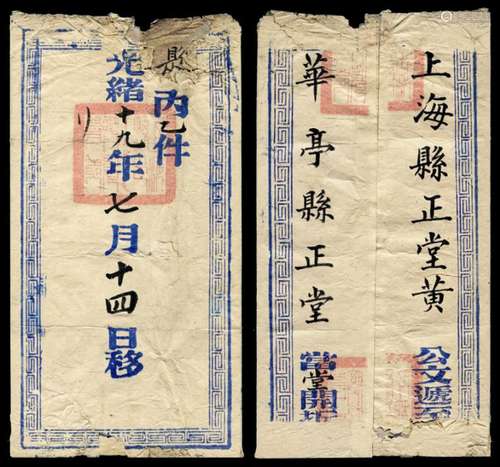 縣
內乙件
光緒十九年七月十四日移
上海縣正堂黃
公文遞至
華亭縣正堂
當堂開拆